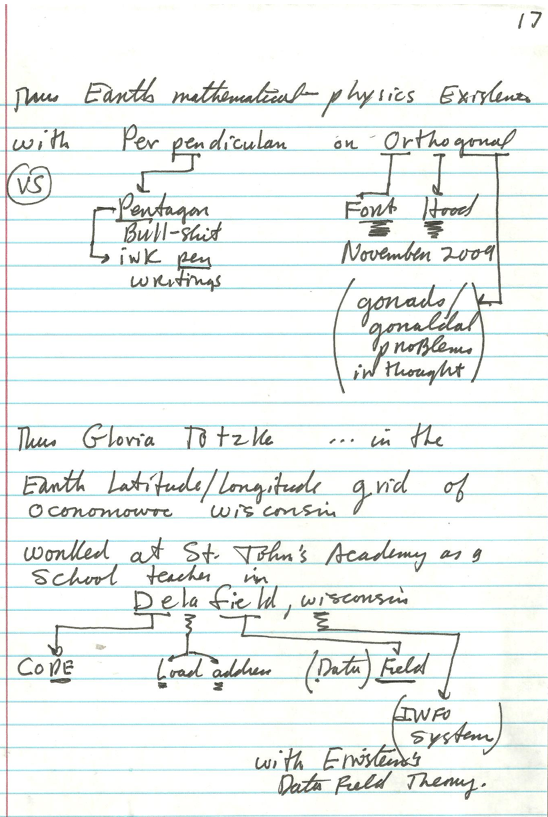 17
Thus Earth mathematical physics Existence
with Perpendicular on Orthogonal
VS
Pentagon
Bull-shit
ink pen
writings
Font Hood
November 2009
(gonads/
gonaldal
problems
in thought)
Thus Gloria Totzke ... in the
Earth Latitude/Longitude grid of
Oconomowoc Wisconsin
worked at St. John's Academy as a
School teacher in
Delafield, Wisconsin
CODE Load address (Data) Field
(INFO
System)
with Einstein's
Data Field Theory.